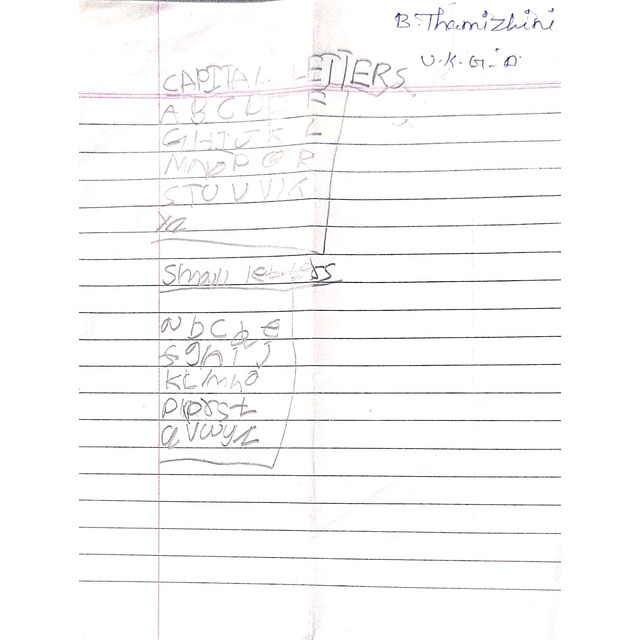 B. Thamizhini
U.K.G-A
CAPITAL LETTERS
A B C D E F
G H I J K L
M N O P Q R
S T U V W X
Small letters
a b c d e
f g h i j
k l m n o
p q r s t
u v w y z